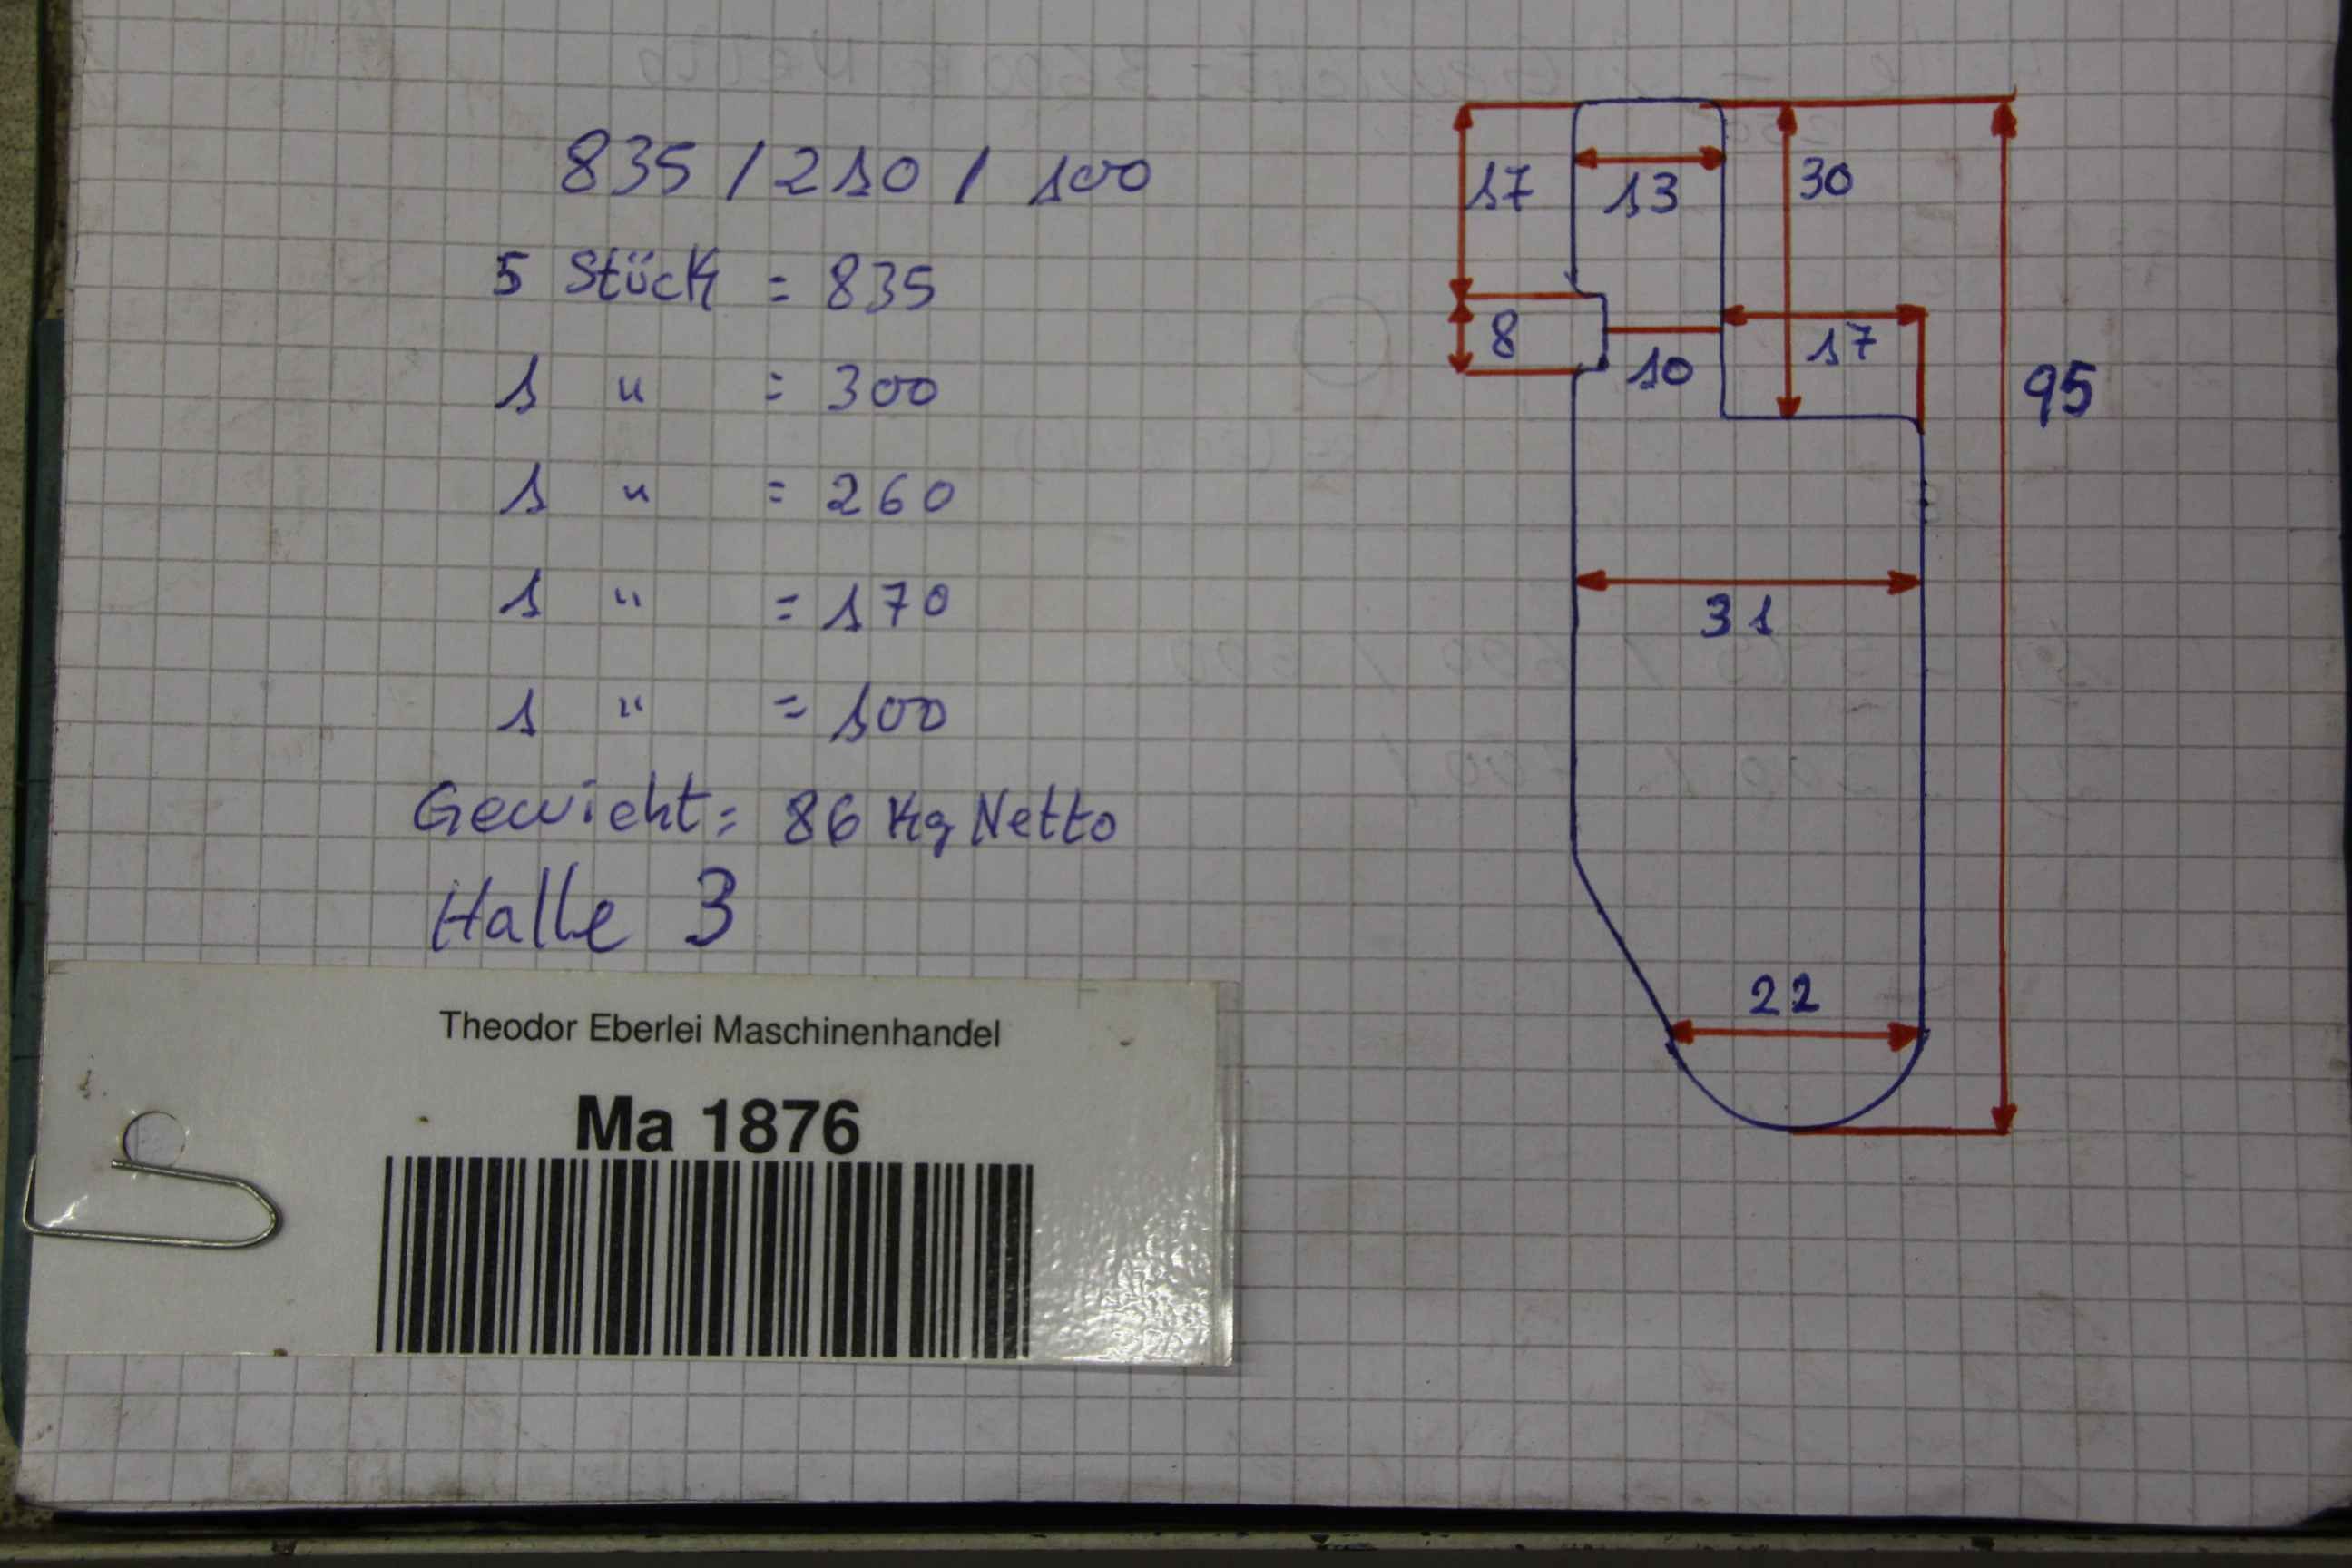 835 / 210 / 100
5 Stück = 835
1 " = 300
1 " = 260
1 " = 170
1 " = 100
Gewicht = 86 Kg Netto
Halle 3
Theodor Eberlei Maschinenhandel
Ma 1876
17
13
30
8
10
17
95
31
22